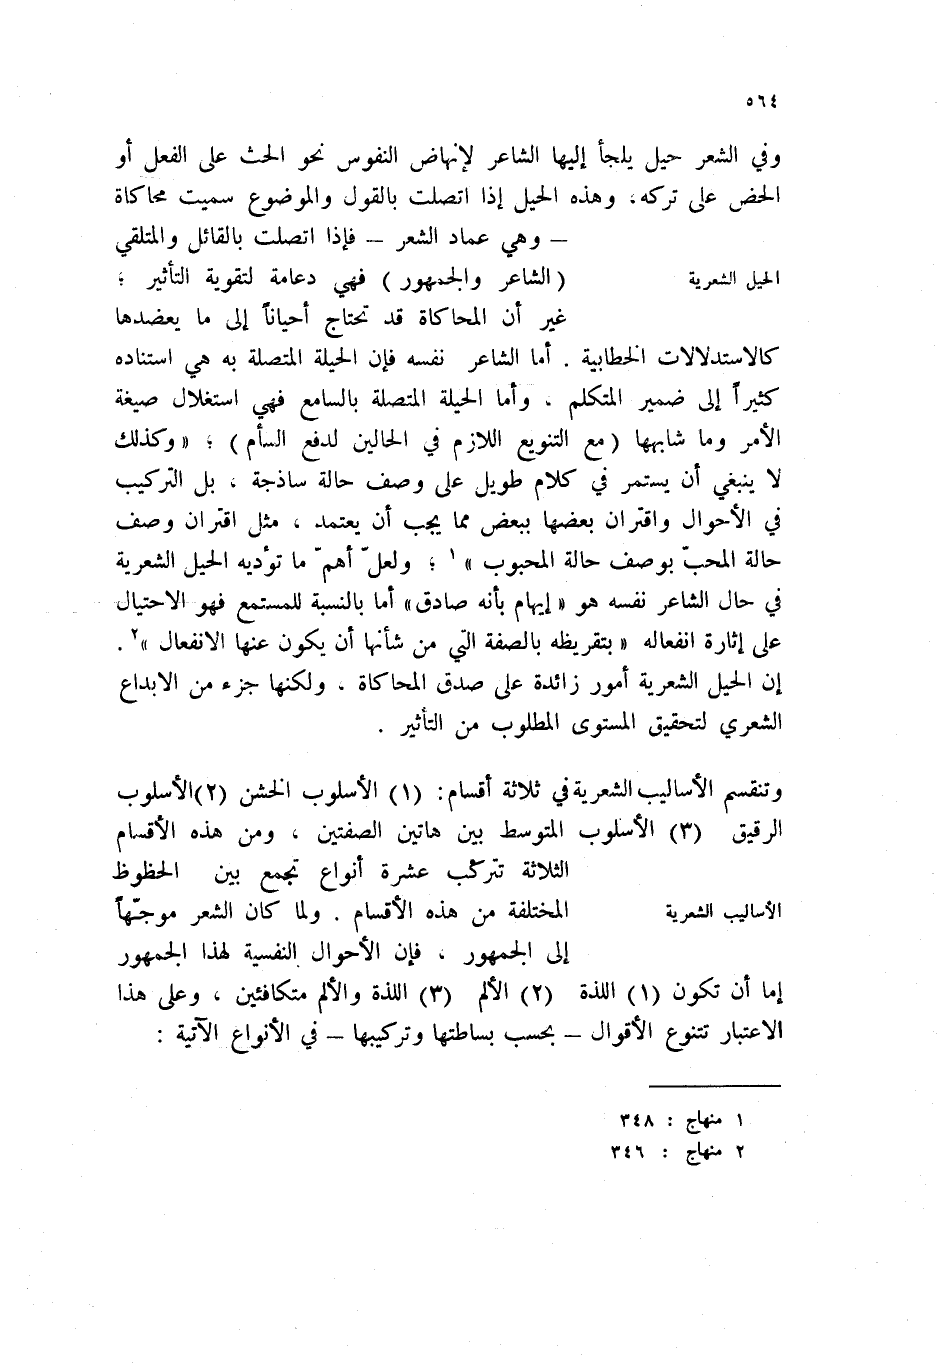 ٥٦٤
وفي الشعر حيل يلجأ إليها الشاعر لإنهاض النفوس نحو الحث على الفعل أو
الحض على تركه، وهذه الحيل إذا اتصلت بالقول والموضوع سميت محاكاة
– وهي عماد الشعر – فإذا اتصلت بالقائل والمتلقي
الحيل الشعرية
(الشاعر والجمهور) فهي دعامة لتقوية التأثير ؛
غير أن المحاكاة قد تحتاج أحياناً إلى ما يعضدها
كالاستدلالات الخطابية . أما الشاعر نفسه فإن الحيلة المتصلة به هي استناده
كثيراً إلى ضمير المتكلم ، وأما الحيلة المتصلة بالسامع فهي استغلال صيغة
الأمر وما شابهها (مع التنويع اللازم في الحالين لدفع السأم) ؛ « وكذلك
لا ينبغي أن يستمر في كلام طويل على وصف حالة ساذجة ، بل التركيب
في الأحوال واقتران بعضها ببعض مما يجب أن يعتمد ، مثل اقتران وصف
حالة المحبّ بوصف حالة المحبوب » ١ ؛ ولعلّ أهمّ ما تؤديه الحيل الشعرية
في حال الشاعر نفسه هو « إيهام بأنه صادق» أما بالنسبة للمستمع فهو الاحتيال
على إثارة انفعاله « بتقريظه بالصفة التي من شأنها أن يكون عنها الانفعال »٢ .
إن الحيل الشعرية أمور زائدة على صدق المحاكاة ، ولكنها جزء من الابداع
الشعري لتحقيق المستوى المطلوب من التأثير .
وتنقسم الأساليب الشعرية في ثلاثة أقسام: (١) الأسلوب الخشن (٢)الأسلوب
الرقيق (٣) الأسلوب المتوسط بين هاتين الصفتين ، ومن هذه الأقسام
الثلاثة تتركّب عشرة أنواع تجمع بين الحظوظ
الأساليب الشعرية
المختلفة من هذه الأقسام . ولما كان الشعر موجّهاً
إلى الجمهور ، فإن الأحوال النفسية لهذا الجمهور
إما أن تكون (١) اللذة (٢) الألم (٣) اللذة والألم متكافئين ، وعلى هذا
الاعتبار تتنوع الأقوال – بحسب بساطتها وتركيبها – في الأنواع الآتية :
١ منهاج : ٣٤٨
٢ منهاج : ٣٤٦